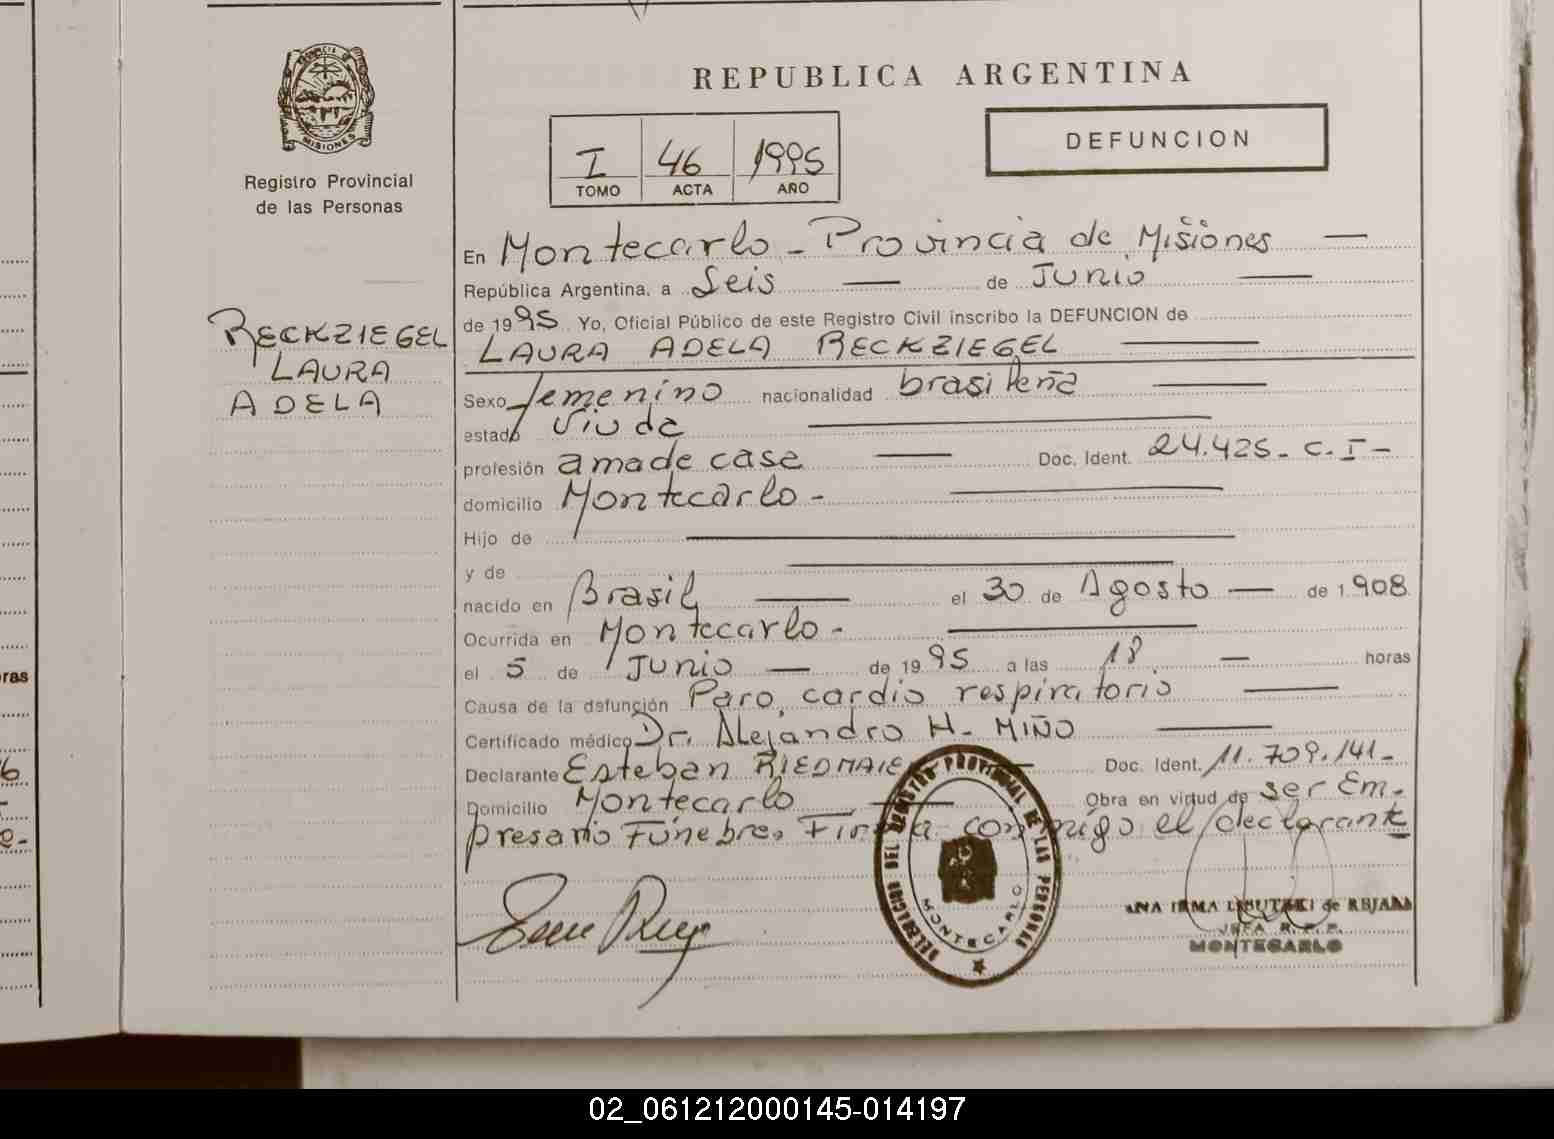 PROVINCIA D
MISIONES
Registro Provincial
de las Personas
RECKZIEGEL
LAURA
ADELA
REPUBLICA ARGENTINA
I 46 1995
TOMO ACTA AÑO
DEFUNCION
En Montecarlo - Provincia de Misiones
República Argentina, a Seis de Junio
de 1995 Yo, Oficial Público de este Registro Civil inscribo la DEFUNCION de
LAURA ADELA RECKZIEGEL
Sexo femenino nacionalidad brasileña
estado Viuda
profesión ama de casa Doc. Ident. 24.425- C.I-
domicilio Montecarlo-
Hijo de
y de
nacido en Brasil el 30 de Agosto de 1.908
Ocurrida en Montecarlo-
el 5 de Junio de 1995 a las 18 horas
Causa de la defunción Paro cardio respiratorio
Certificado médico Dr. Alejandro H. MIÑO
Declarante Esteban RIEDMAIE Doc. Ident. 11.709.141-
Domicilio Montecarlo Obra en virtud de ser Em-
presario Funebre. Firma conmigo el declarante
DELEGACION DEL REGISTRO PROVINCIAL DE LAS PERSONAS
MONTECARLO
ANA IRMA de REJALA
JEFA R.P.P.
MONTECARLO
ras
6
e-
02_061212000145-014197